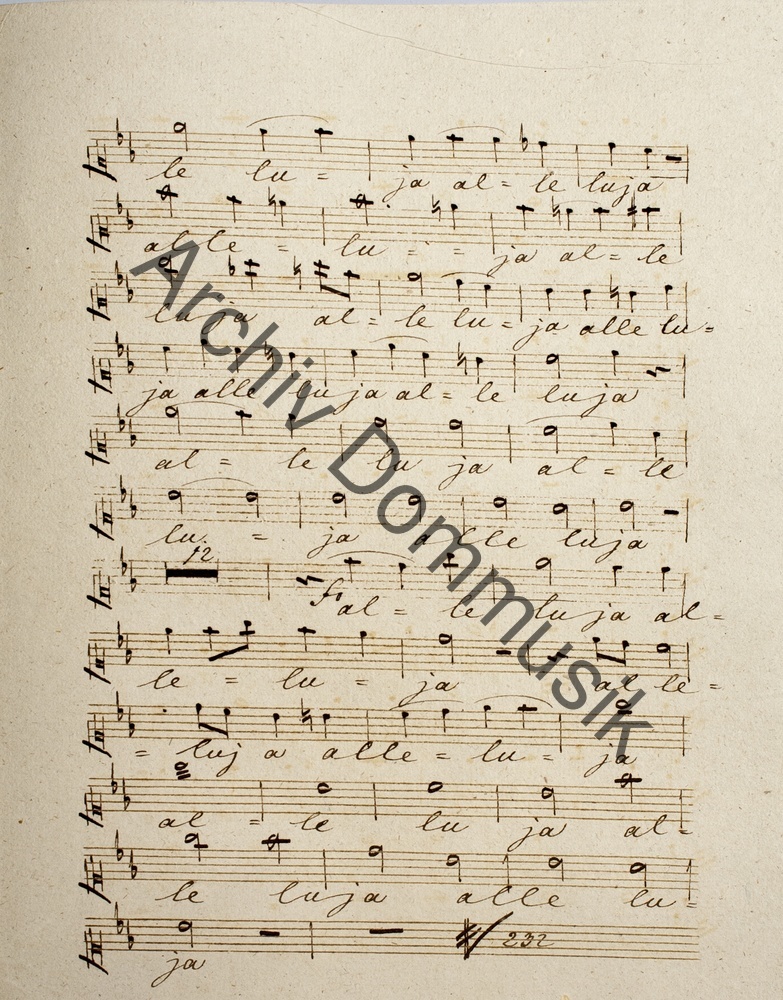 le lu = ja al = le luja
alle = lu = = ja al = le
luja al = le lu = ja alle lu =
ja alle luja al = le luja
al = le lu ja al = le
lu. = ja alle luja
12
fo al = le luja al =
le = lu = ja al le =
= luja alle = lu = ja
al = le lu ja al =
le luja alle lu =
232
ja
Archiv Dommusik